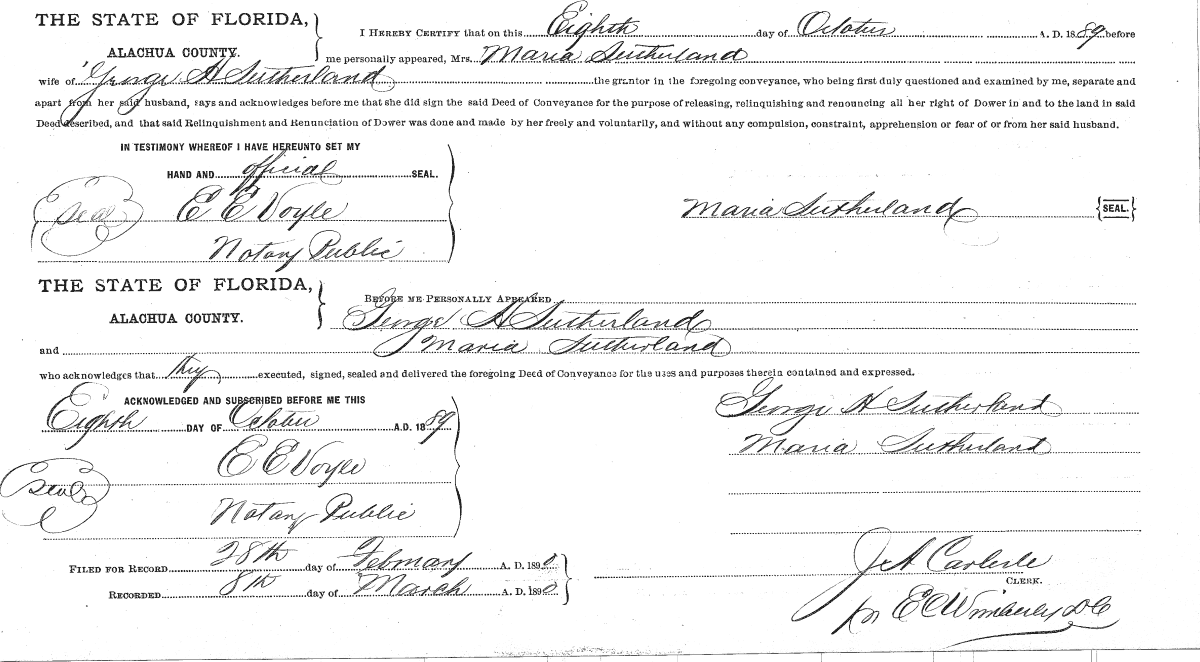 THE STATE OF FLORIDA,
ALACHUA COUNTY.
I HEREBY CERTIFY that on this Eighth day of October A. D. 1889 before
me personally appeared, Mrs. Maria Sutherland
wife of George H Sutherland the grantor in the foregoing conveyance, who being first duly questioned and examined by me, separate and
apart from her said husband, says and acknowledges before me that she did sign the said Deed of Conveyance for the purpose of releasing, relinquishing and renouncing all her right of Dower in and to the land in said
Deed described, and that said Relinquishment and Renunciation of Dower was done and made by her freely and voluntarily, and without any compulsion, constraint, apprehension or fear of or from her said husband.
IN TESTIMONY WHEREOF I HAVE HEREUNTO SET MY
HAND AND official SEAL.
Seal E E Voyle
Notary Public
Maria Sutherland {SEAL.}
THE STATE OF FLORIDA,
ALACHUA COUNTY.
BEFORE ME PERSONALLY APPEARED
George H Sutherland
and Maria Sutherland
who acknowledges that they executed, signed, sealed and delivered the foregoing Deed of Conveyance for the uses and purposes therein contained and expressed.
ACKNOWLEDGED AND SUBSCRIBED BEFORE ME THIS
Eighth DAY OF October A.D. 1889
Seal E E Voyle
Notary Public
George H Sutherland
Maria Sutherland
FILED FOR RECORD 28th day of February A. D. 1890
RECORDED 8th day of March A. D. 1890
J A Carlisle
CLERK.
for E C Wimberly D C